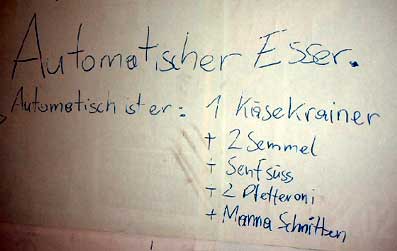 Automatischer Esser.
Automatisch ist er: 1 Käsekrainer
+ 2 Semmel
+ Senf süss
+ 2 Pfefferoni
+ Manna Schnitten